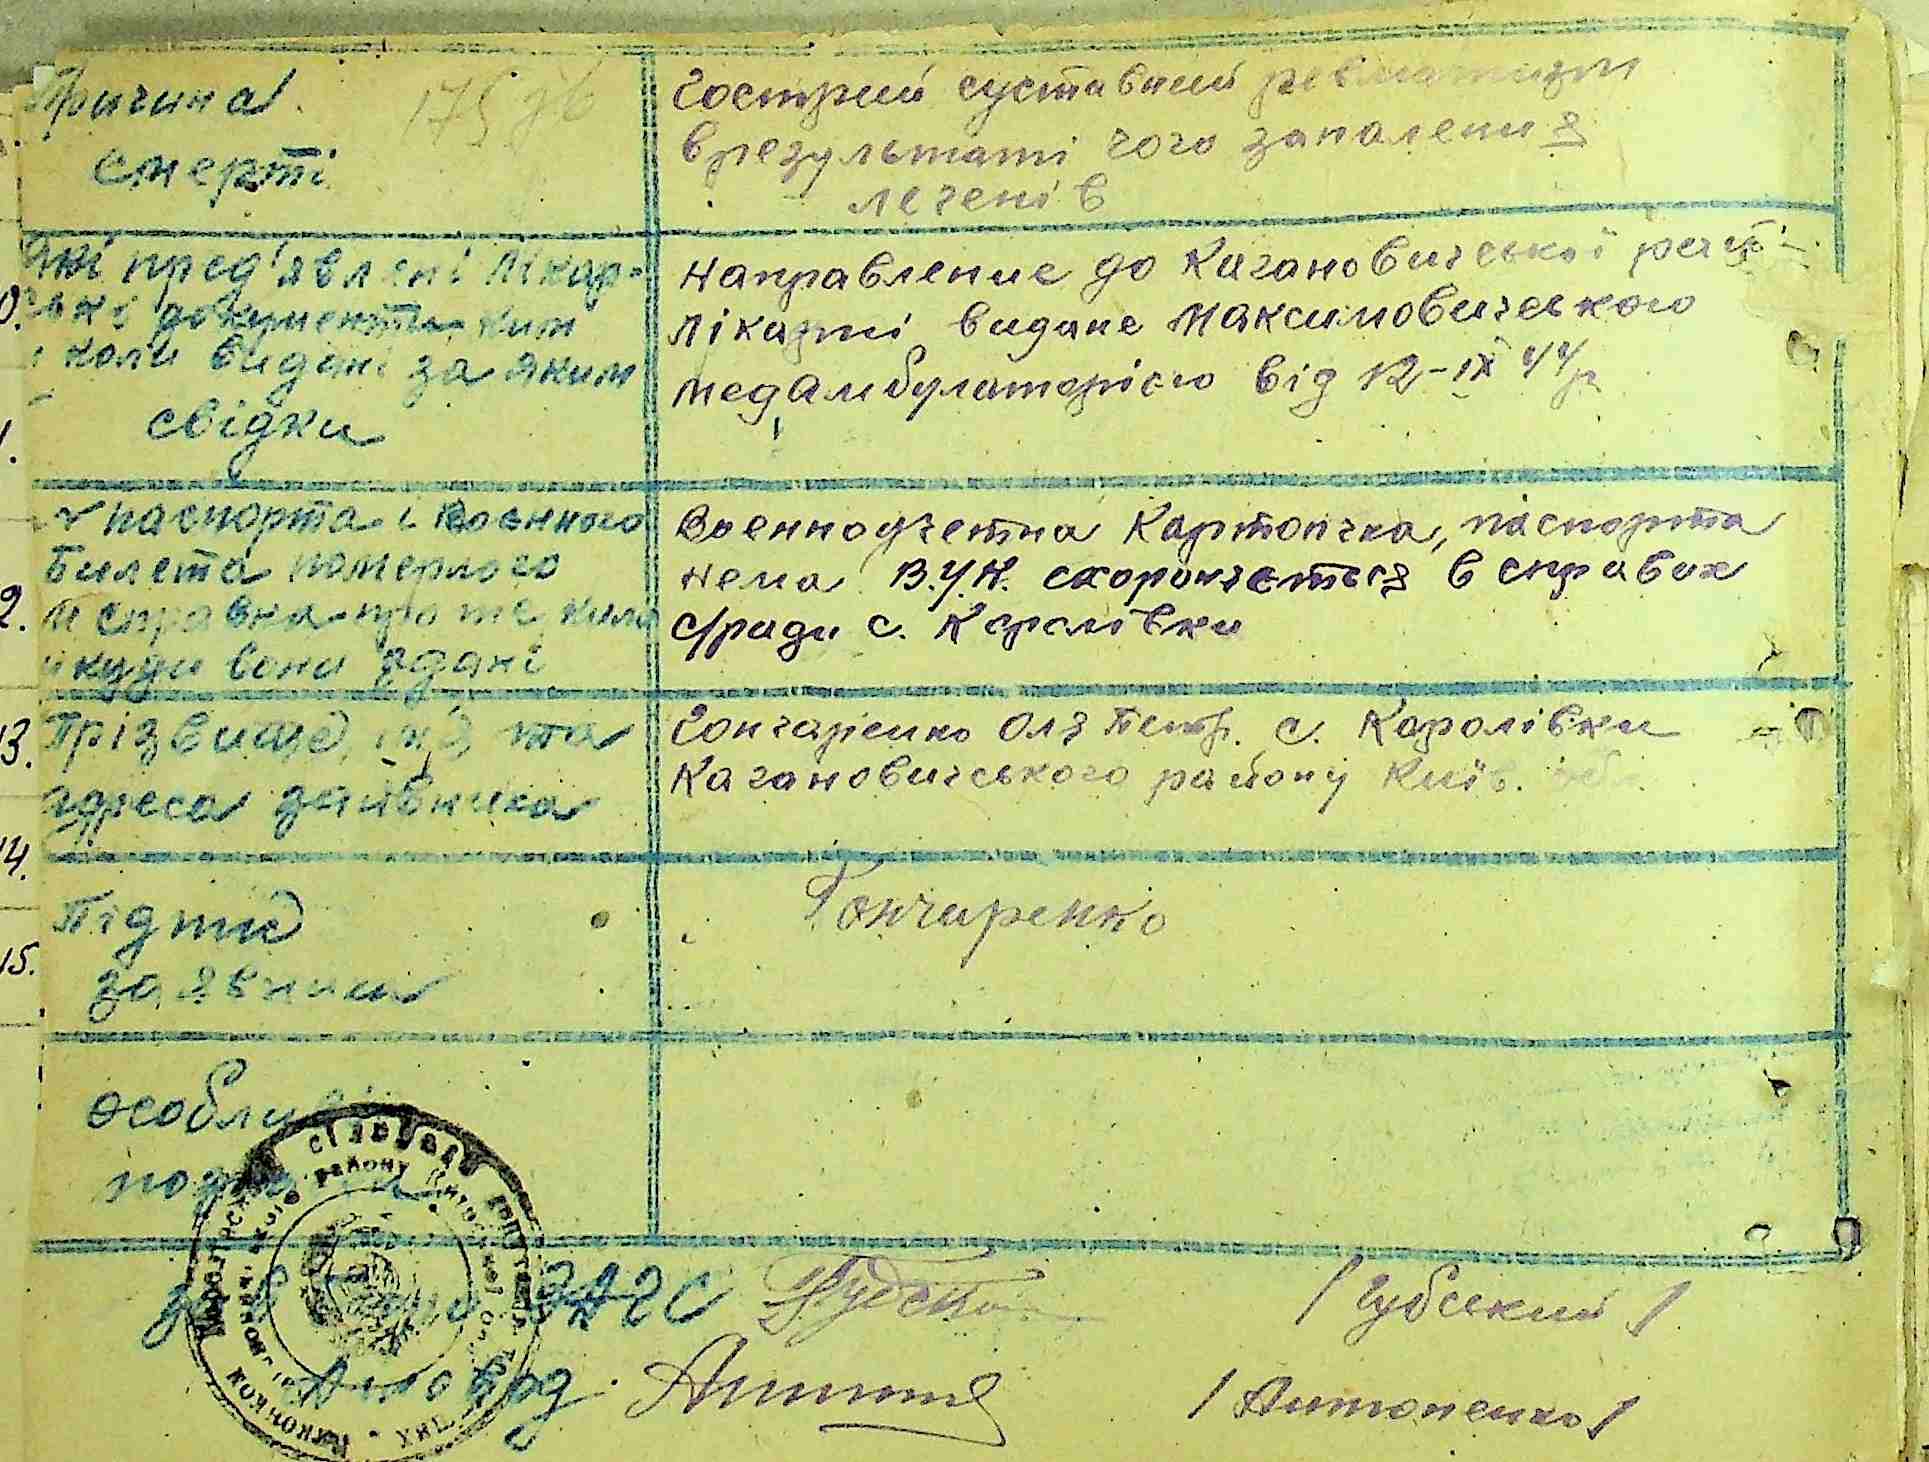 Причина
смерті
175
Гострий суставний ревматизм
врезультаті чого запалення
леченів
Які пред'явлені лікар-
ські документи ким
і коли видані за яким
свідки
Направление до Кагановичської рай-
лікарні видане Максимовичського
медамбулаторією від 12-IX 44р
12.
паспорта і военного
билета померлого
й справка про те, коли
й куди вони здані
Военноучетна карточка, паспорта
нема В.У.К. схороняється в справах
с/ради с. Королівки
13.
Прізвище, ім'я, та
адреса заявника
Гончаренко Оля Петр. с. Королівки
Кагановичського району Київ. обл.
14.
Підпис
заявника
Гончаренко
15.
особливі
ЗАГС
/Губський/
Діловод
/Антоненко/
сільрада
району
виконком